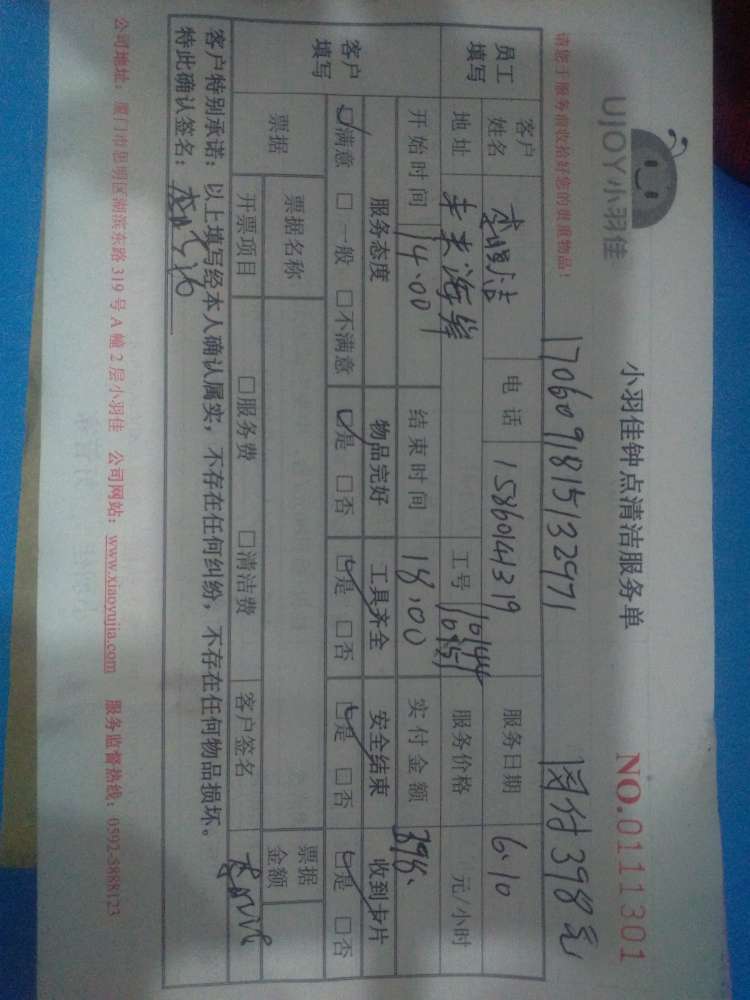 UJOY小羽佳
小羽佳钟点清洁服务单
NO.0111301
请您于服务前收拾好您的贵重物品!
1706091815132971
网付398元
员工填写 客户姓名 电话 15860141319 服务日期 6.10
地址 未来海岸 工号 服务价格 元/小时
开始时间 14.00 结束时间 18.00 实付金额 398.
客户填写 服务态度 物品完好 工具齐全 安全结束 收到卡片
☑满意 □一般 □不满意 ☑是 □否 ☑是 □否 ☑是 □否 ☑是 □否
票据 票据名称 票据金额
开票项目 □服务费 □清洁费 客户签名
客户特别承诺:以上填写经本人确认属实,不存在任何纠纷,不存在任何物品损坏。
特此确认签名:
公司地址:厦门市思明区湖滨东路319号A幢2层小羽佳 公司网站:www.xiaoyujia.com 服务监督热线:0592-5888123